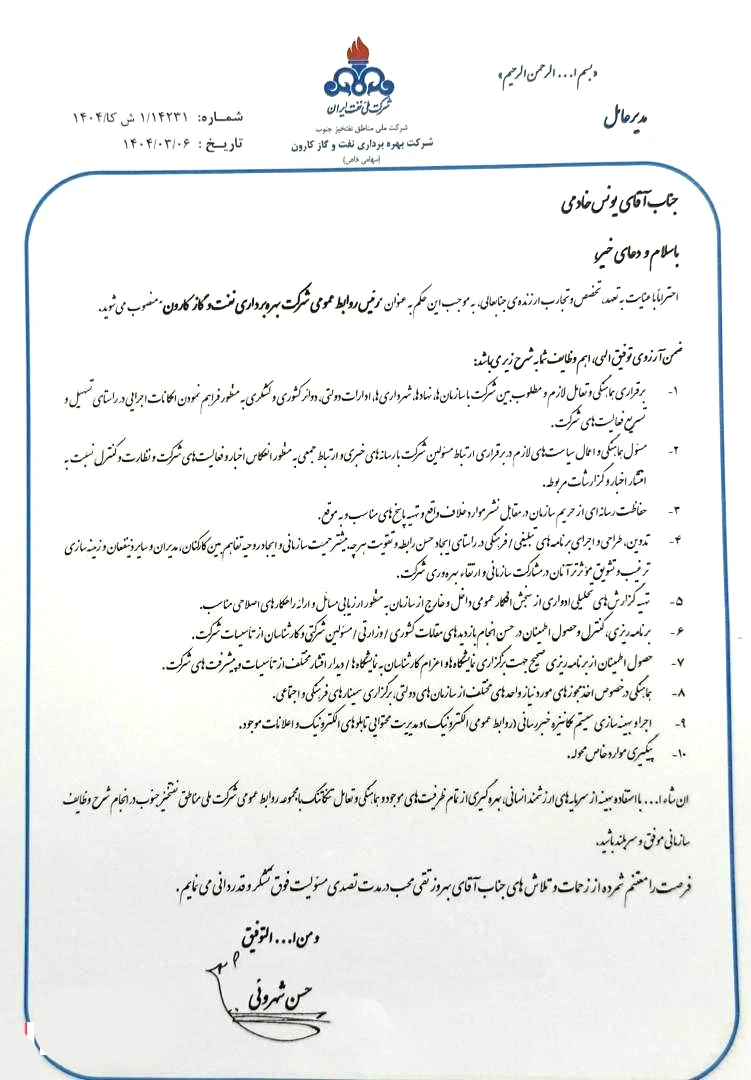 «بسم ا... الرحمن الرحیم»
مدیرعامل
شرکت ملی نفت ایران
شرکت ملی مناطق نفتخیز جنوب
شرکت بهره برداری نفت و گاز کارون
(سهامی خاص)
شماره: ۱/۱۴۲۳۱ ش کا/۱۴۰۴
تاریخ: ۱۴۰۴/۰۳/۰۶
جناب آقای یونس خادمی
باسلام و دعای خیر؛
احتراماً با عنایت به تعهد، تخصص و تجارب ارزنده‌ی جنابعالی، به موجب این حکم به عنوان "رئیس روابط عمومی شرکت بهره برداری نفت و گاز کارون" منصوب می‌شوید.
ضمن آرزوی توفیق الهی، اهم وظایف شما به شرح زیر می‌باشد:
۱- برقراری هماهنگی و تعامل لازم و مطلوب بین شرکت با سازمان‌ها، نهادها، شهرداری‌ها، ادارات دولتی، دوائر کشوری و لشکری به منظور فراهم نمودن امکانات اجرایی در راستای تسهیل و
تسریع فعالیت‌های شرکت.
۲- مسئول هماهنگی و اعمال سیاست‌های لازم در برقراری ارتباط مسئولین شرکت با رسانه‌های خبری و ارتباط جمعی به منظور انعکاس اخبار و فعالیت‌های شرکت و نظارت و کنترل نسبت به
انتشار اخبار و گزارشات مربوطه.
۳- حفاظت رسانه‌ای از حریم سازمان در مقابل نشر موارد خلاف واقع و تهیه پاسخ‌های مناسب و به موقع.
۴- تدوین، طراحی و اجرای برنامه‌های تبلیغی / فرهنگی در راستای ایجاد حسن رابطه و تقویت هرچه بیشتر حمیت سازمانی و ایجاد روحیه تفاهم بین کارکنان، مدیران و سایر ذینفعان و زمینه سازی
ترغیب و تشویق مؤثر تر آنان در مشارکت سازمانی و ارتقاء بهره‌وری شرکت.
۵- تهیه گزارش‌های تحلیلی ادواری از سنجش افکار عمومی داخل و خارج از سازمان به منظور ارزیابی مسائل و ارائه راهکارهای اصلاحی مناسب.
۶- برنامه ریزی، کنترل و حصول اطمینان در حسن انجام بازدیدهای مقامات کشوری / وزارتی / مسئولین شرکتی و کارشناسان از تأسیسات شرکت.
۷- حصول اطمینان از برنامه ریزی صحیح جهت برگزاری نمایشگاه‌ها و اعزام کارشناسان به نمایشگاه‌ها / دیدار اقشار مختلف از تأسیسات و پیشرفت‌های شرکت.
۸- هماهنگی در خصوص اخذ مجوزهای مورد نیاز واحدهای مختلف از سازمان‌های دولتی، برگزاری سمینارهای فرهنگی و اجتماعی.
۹- اجرا و بهینه سازی سیستم مکانیزه خبررسانی (روابط عمومی الکترونیک) و مدیریت محتوایی تابلوهای الکترونیک و اعلانات موجود.
۱۰- پیگیری موارد خاص محوله.
ان شاء ا... با استفاده بهینه از سرمایه‌های ارزشمند انسانی، بهره گیری از تمام ظرفیت‌های موجود و هماهنگی و تعامل تنگاتنگ با مجموعه روابط عمومی شرکت ملی مناطق نفتخیز جنوب در انجام شرح وظایف
سازمانی موفق و سربلند باشید.
فرصت را مغتنم شمرده از زحمات و تلاش‌های جناب آقای بهروز تقی محب در مدت تصدی مسئولیت فوق تشکر و قدردانی می نمایم.
و من ا... التوفیق
حسن شهروئی